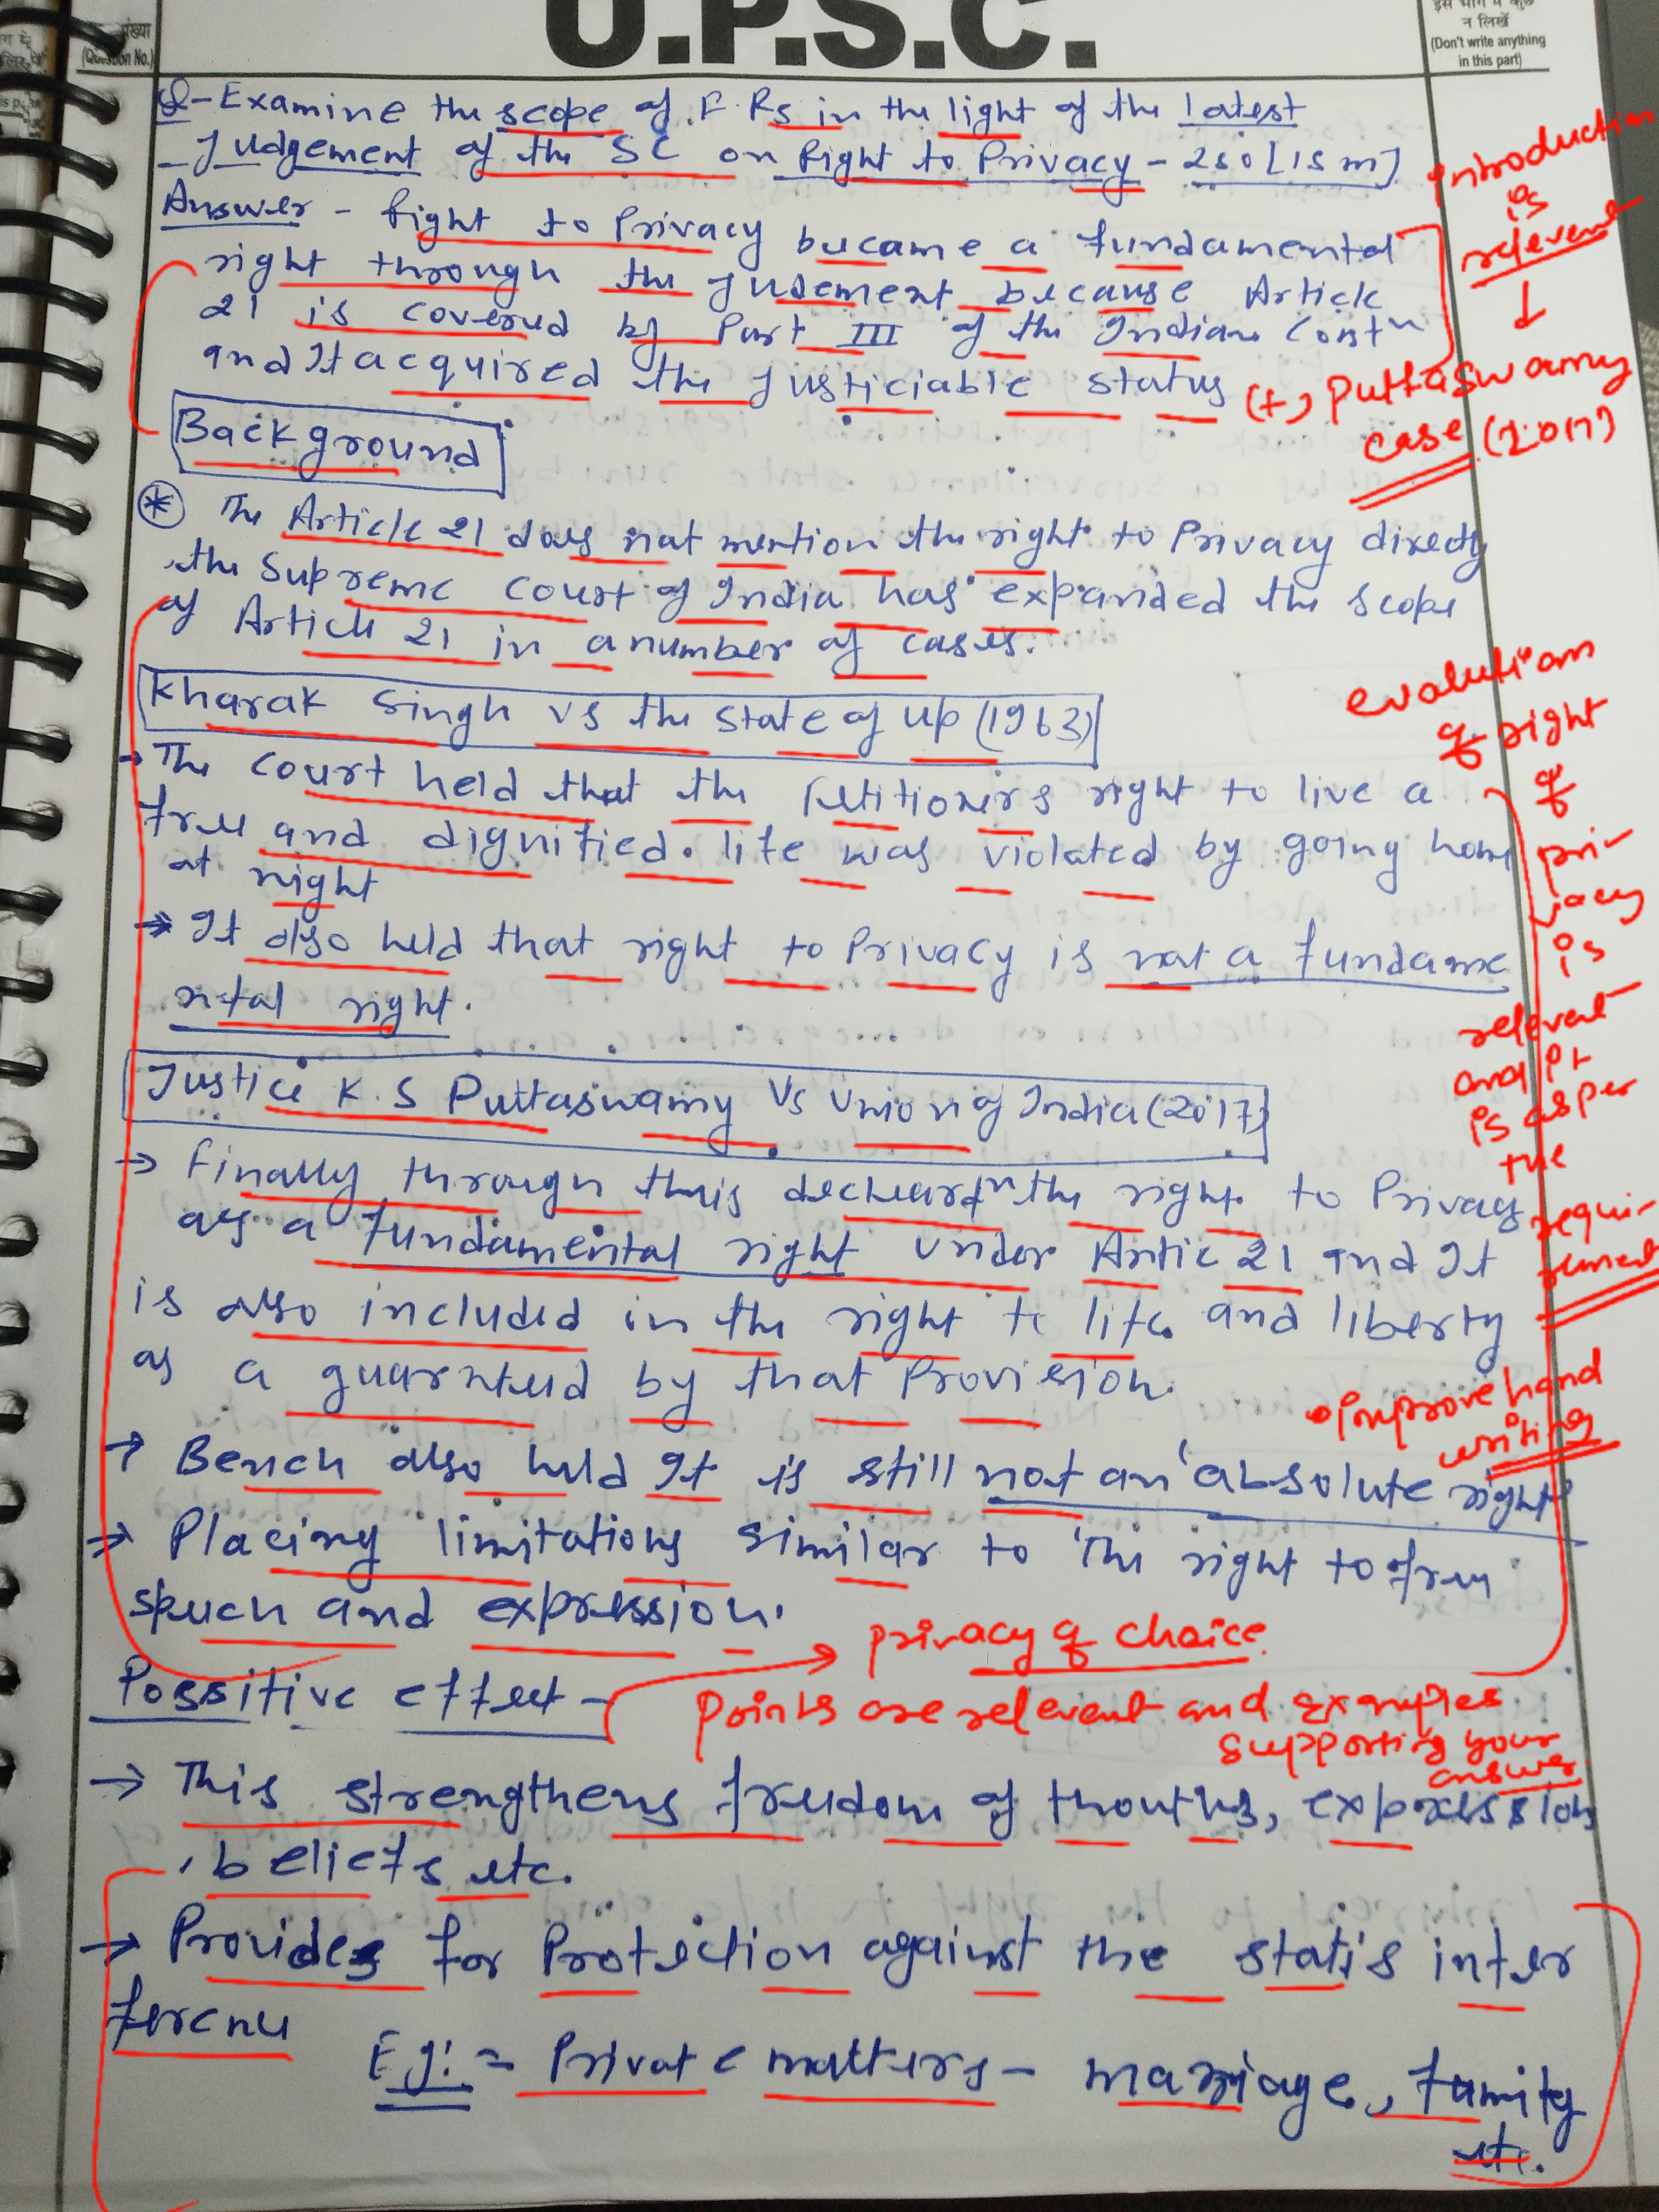 U.P.S.C.
संख्या
(Question No.)
न लिखें
(Don't write anything
in this part)
Q- Examine the scope of F Rs in the light of the latest
- Judgement of the SC on Right to Privacy - 250 [15 m]
Answer - Right to Privacy became a fundamental
right through the Jusement because Article
21 is covered by Part III of the Indian Constn
and It acquired the Justiciable status
introduction
is
relevent
↓
(+) Puttaswamy
case (2017)
Background
* The Article 21 does not mention the right to Privacy directly
the Supreme Court of India has expanded the scope
of Article 21 in a number of cases.
Kharak Singh vs the State of UP (1963)
→ The court held that the Petitioner's right to live a
free and dignified life was violated by going home
at night
→ It also held that right to Privacy is not a fundame
ntal right.
evolution
of right
of
pri-
vacy
is
relevat
and it
is as per
the
requi-
rement
Justice K.S Puttaswamy Vs Union of India (2017)
→ Finally through this decleardn the right to Privacy
as a fundamental right under Artic 21 and It
is also included in the right to life and liberty
as a guarnteed by that Provision.
• improve hand
writing
→ Bench also held It is still not an absolute right
→ Placing limitations similar to the right to free
speech and expression.
Possitive effect -
→ privacy of choice
Points are relevent and examples
supporting your
answer
→ This strengthens freedom of thouths, expression
, beliefs etc.
→ Provides for Protection against the state's inter
ference
Eg:= Private matters - marriage, family
etc.